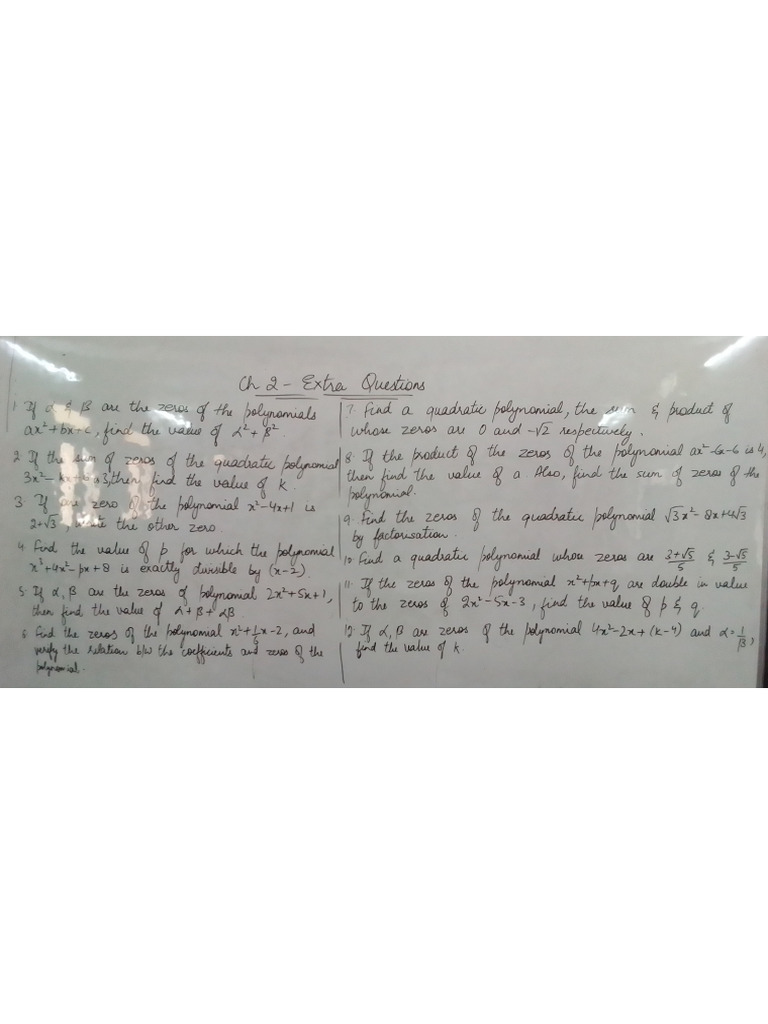 Ch 2 - Extra Questions
1. If α & β are the zeros of the polynomials
ax²+bx+c, find the value of α²+β².
2. If the sum of zeros of the quadratic polynomial
3x²-kx+6 is 3, then find the value of k.
3. If one zero of the polynomial x²-4x+1 is
2+√3, write the other zero.
4. Find the value of p for which the polynomial
x³+4x²-px+8 is exactly divisible by (x-2).
5. If α, β are the zeros of polynomial 2x²+5x+1,
then find the value of α+β+αβ.
6. Find the zeros of the polynomial x²+1/6x-2, and
verify the relation b/w the coefficients and zeros of the
polynomial.
7. Find a quadratic polynomial, the sum & product of
whose zeros are 0 and -√2 respectively.
8. If the product of the zeros of the polynomial ax²-6x-6 is 4,
then find the value of a. Also, find the sum of zeros of the
polynomial.
9. Find the zeros of the quadratic polynomial √3x²-8x+4√3
by factorisation.
10. Find a quadratic polynomial whose zeros are 3+√5/5 & 3-√5/5
11. If the zeros of the polynomial x²+px+q are double in value
to the zeros of 2x²-5x-3, find the value of p & q.
12. If α, β are zeros of the polynomial 4x²-2x+(k-4) and α=1/β,
find the value of k.